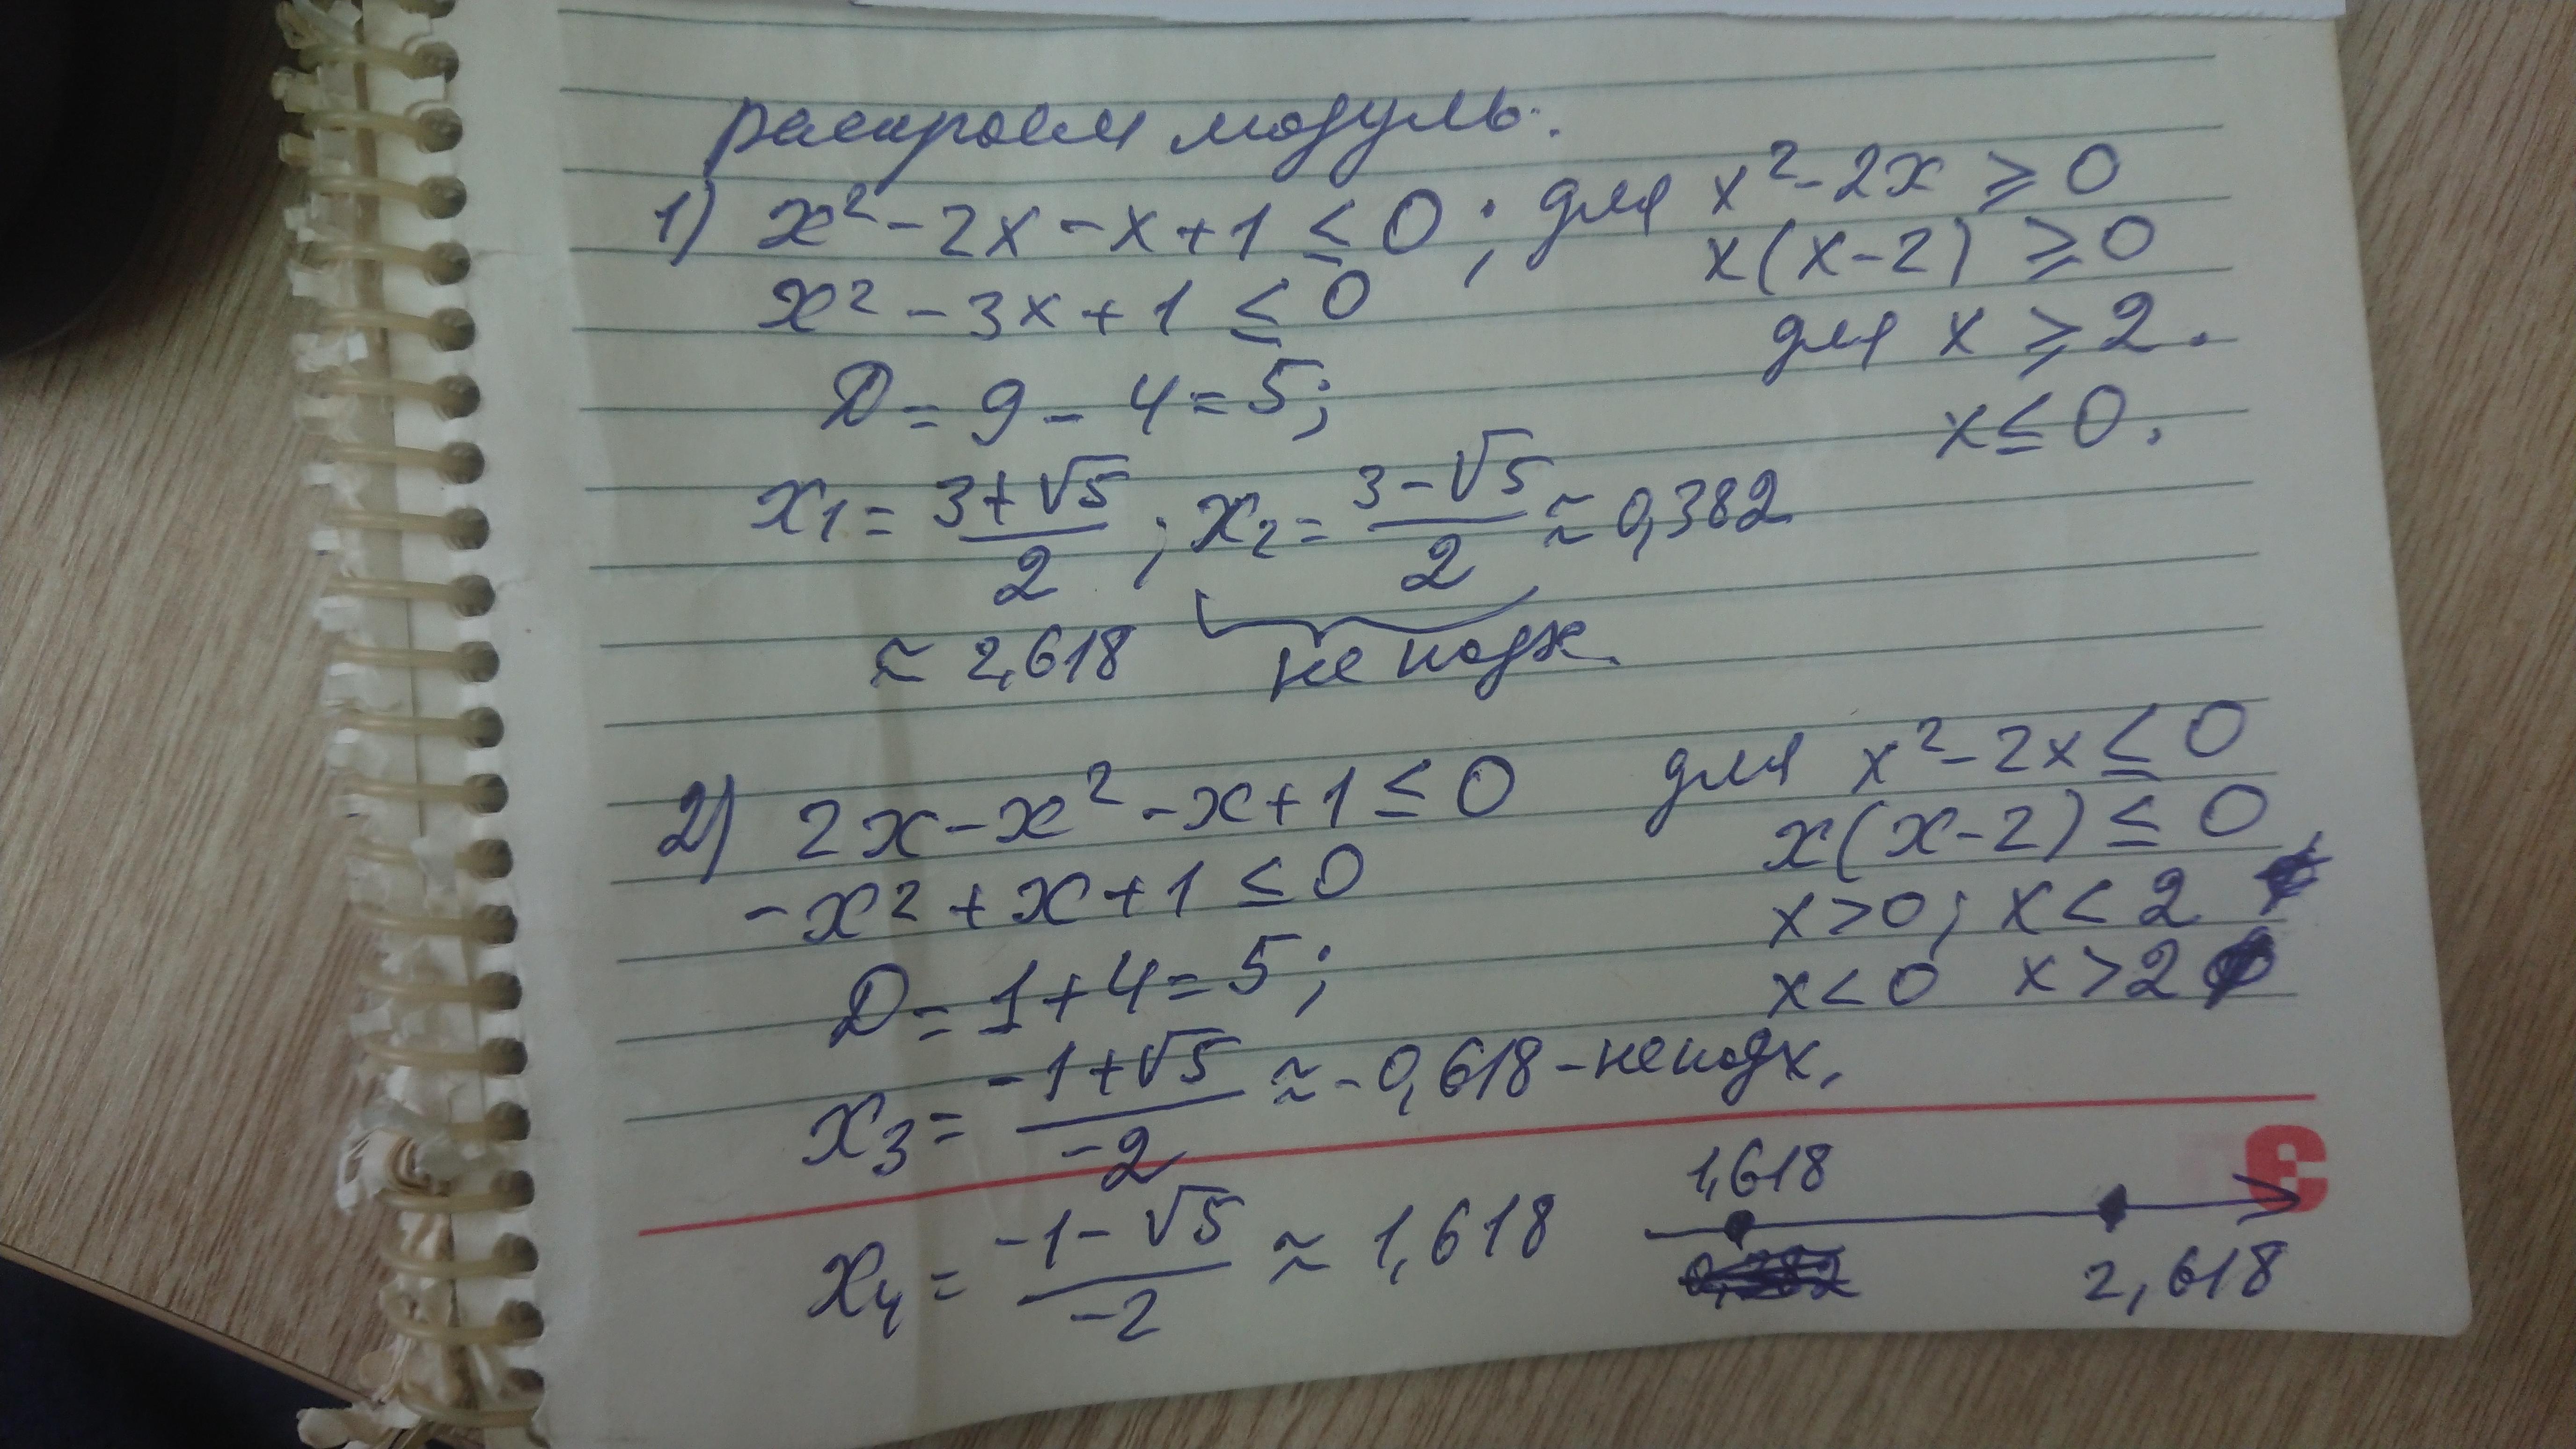 раскроем модуль.
1) x² - 2x - x + 1 ≤ 0 ; для x² - 2x ≥ 0
x(x-2) ≥ 0
x² - 3x + 1 ≤ 0
для x ≥ 2.
D = 9 - 4 = 5;
x ≤ 0.
x₁ = (3+√5)/2 ; x₂ = (3-√5)/2 ≈ 0,382
≈ 2,618 не подх.
2) 2x - x² - x + 1 ≤ 0 для x² - 2x ≤ 0
x(x-2) ≤ 0
-x² + x + 1 ≤ 0
x > 0; x < 2
D = 1 + 4 = 5;
x < 0 x > 2
x₃ = (-1+√5)/-2 ≈ -0,618 - не подх.
x₄ = (-1-√5)/-2 ≈ 1,618
1,618
2,618
3